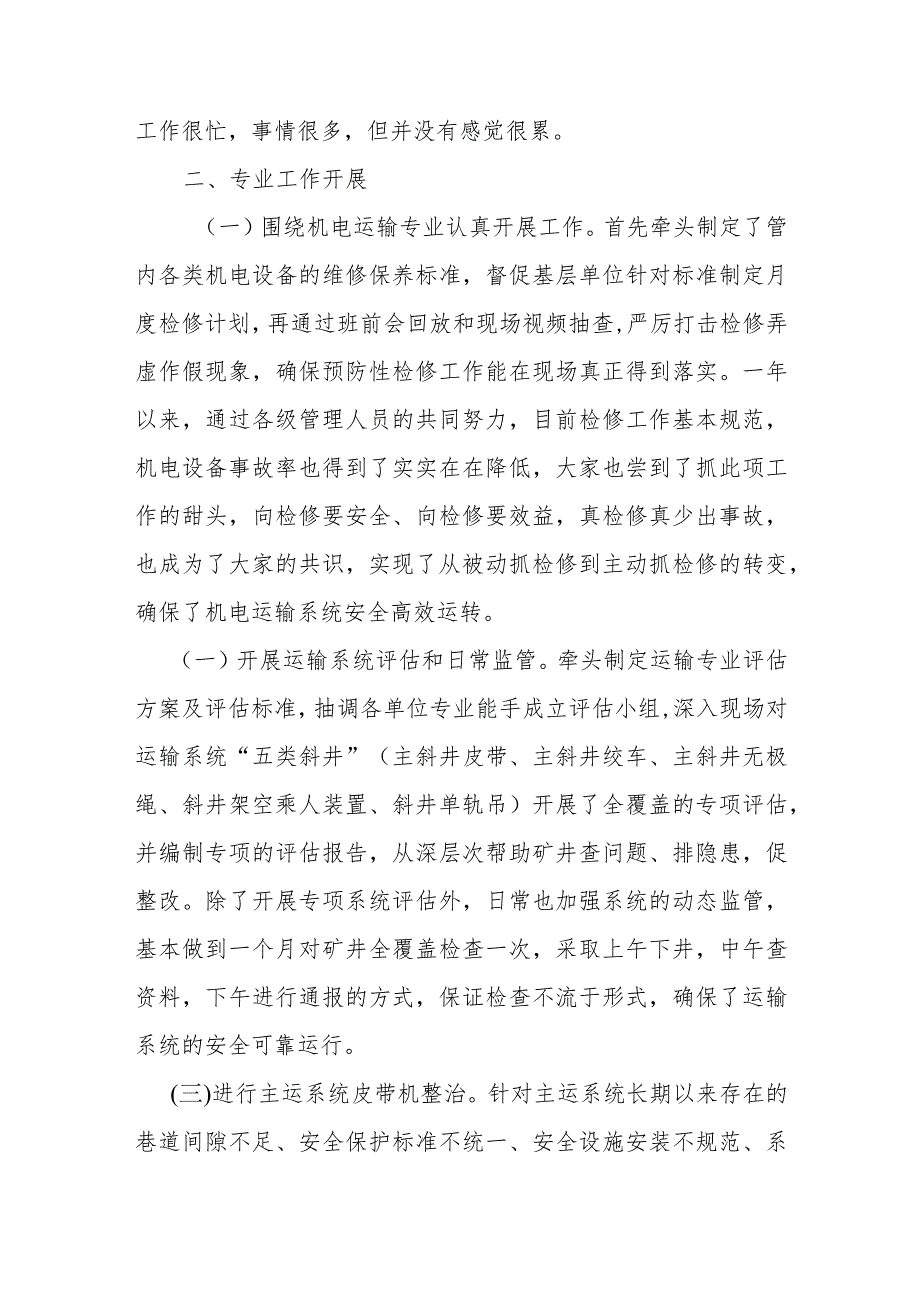 工作很忙，事情很多，但并没有感觉很累。
二、专业工作开展
（一）围绕机电运输专业认真开展工作。首先牵头制定了管
内各类机电设备的维修保养标准，督促基层单位针对标准制定月
度检修计划，再通过班前会回放和现场视频抽查,严厉打击检修弄
虚作假现象，确保预防性检修工作能在现场真正得到落实。一年
以来，通过各级管理人员的共同努力，目前检修工作基本规范，
机电设备事故率也得到了实实在在降低，大家也尝到了抓此项工
作的甜头，向检修要安全、向检修要效益，真检修真少出事故，
也成为了大家的共识，实现了从被动抓检修到主动抓检修的转变，
确保了机电运输系统安全高效运转。
（一）开展运输系统评估和日常监管。牵头制定运输专业评估
方案及评估标准，抽调各单位专业能手成立评估小组,深入现场对
运输系统“五类斜井”（主斜井皮带、主斜井绞车、主斜井无极
绳、斜井架空乘人装置、斜井单轨吊）开展了全覆盖的专项评估，
并编制专项的评估报告，从深层次帮助矿井查问题、排隐患，促
整改。除了开展专项系统评估外，日常也加强系统的动态监管，
基本做到一个月对矿井全覆盖检查一次，采取上午下井，中午查
资料，下午进行通报的方式，保证检查不流于形式，确保了运输
系统的安全可靠运行。
(三)进行主运系统皮带机整治。针对主运系统长期以来存在的
巷道间隙不足、安全保护标准不统一、安全设施安装不规范、系